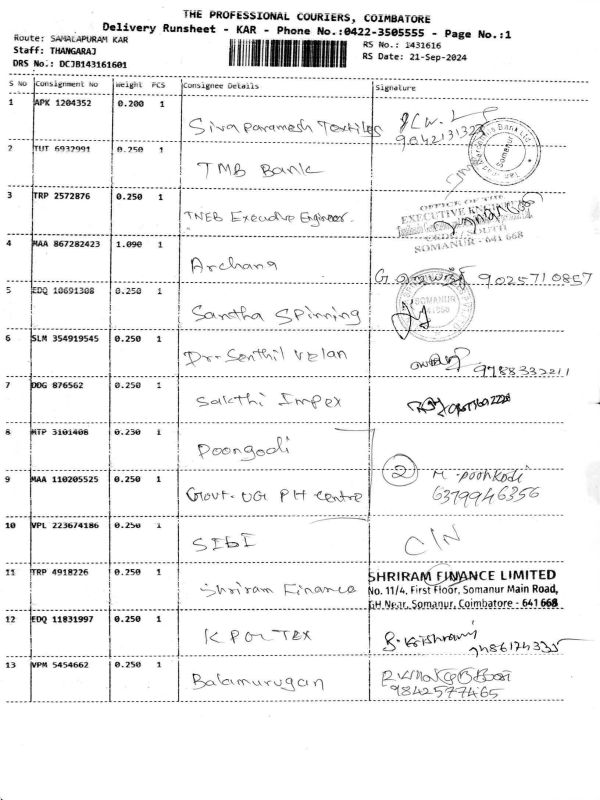 THE PROFESSIONAL COURIERS, COIMBATORE
Delivery Runsheet - KAR - Phone No.:0422-3505555 - Page No.:1
Route: SAMALAPURAM KAR
RS No.: 1431616
Staff: THANGARAJ
RS Date: 21-Sep-2024
DRS No.: DCJB143161601
S No Consignment No Weight PCS Consignee Details Signature
1 APK 1204352 0.200 1
Siva Paramesh Textiles
2 TUT 6932991 0.250 1
TMB Bank
Somanur
3 TRP 2572876 0.250 1
TNEB Executive Engineer
OFFICE OF THE
EXECUTIVE ENGINEER
SOMANUR - 641 668
4 MAA 867282423 1.090 1
Archana
G. 9025710857
5 EDQ 10691308 0.250 1
Santha Spinning
SOMANUR
6 SLM 354919545 0.250 1
Dr. Senthil Velan
9788332211
7 DDG 876562 0.250 1
Sakthi Impex
8 MTP 3101408 0.230 1
Poongodi
9 MAA 110205525 0.250 1
Govt. UG PH Centre
2 M. Poonkodi
6379946356
10 VPL 223674186 0.250 1
SIBI
C/N
11 TRP 4918226 0.250 1
Shriram Finance
SHRIRAM FINANCE LIMITED
No. 11/4, First Floor, Somanur Main Road,
GH Near, Somanur, Coimbatore - 641 668
12 EDQ 11831997 0.250 1
K POL TEX
13 VPM 5454662 0.250 1
Balamurugan
9842577465